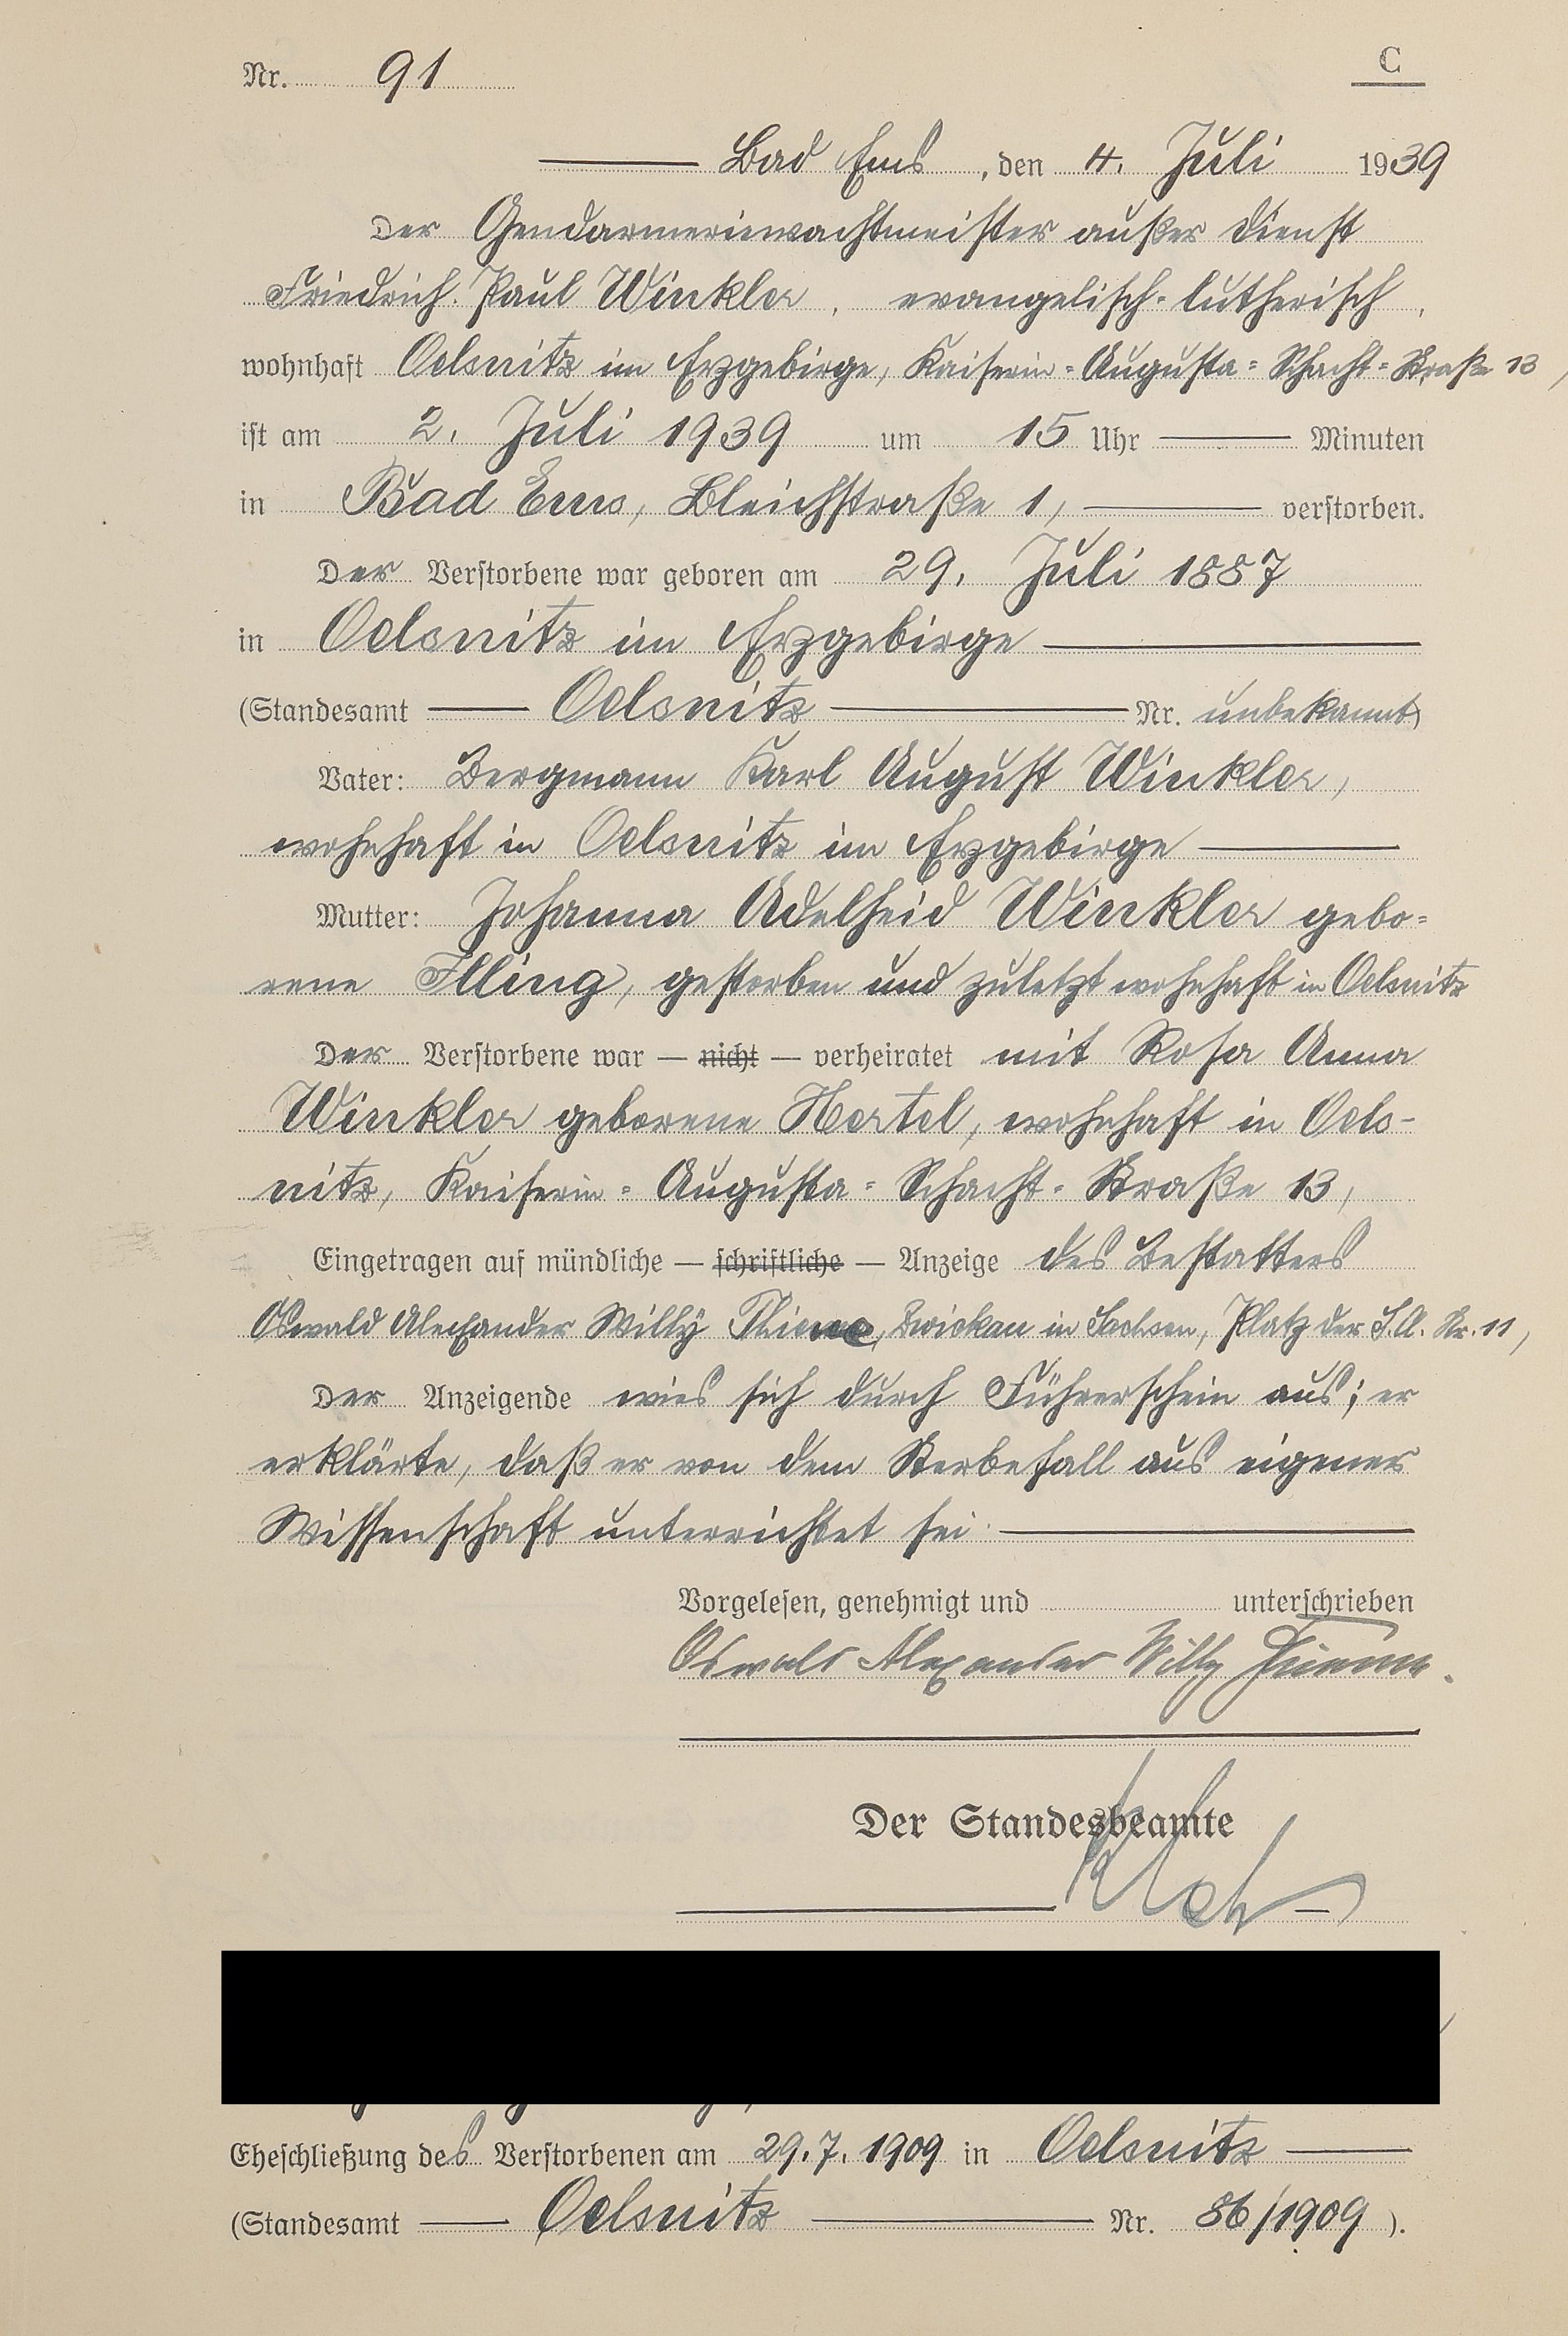 Nr. 91
C
Bad Ems, den 4. Juli 1939
Der Gendarmeriewachtmeister außer Dienst
Friedrich Paul Winkler, evangelisch-lutherisch,
wohnhaft Oelsnitz im Erzgebirge, Kaiserin-Augusta-Schacht-Straße 13,
ist am 2. Juli 1939 um 15 Uhr Minuten
in Bad Ems, Bleichstraße 1, verstorben.
Der Verstorbene war geboren am 29. Juli 1887
in Oelsnitz im Erzgebirge
(Standesamt Oelsnitz Nr. unbekannt)
Vater: Bergmann Karl August Winkler,
wohnhaft in Oelsnitz im Erzgebirge
Mutter: Johanna Adelheid Winkler gebo-
rene Illing, gestorben und zuletzt wohnhaft in Oelsnitz
Der Verstorbene war — nicht — verheiratet mit Rosa Anna
Winkler geborene Hertel, wohnhaft in Oels-
nitz, Kaiserin-Augusta-Schacht-Straße 13,
Eingetragen auf mündliche — schriftliche — Anzeige des Bestatters
Oswald Alexander Willy Thieme, Zwickau in Sachsen, Platz der S.A. Nr. 11,
Der Anzeigende wies sich durch Führerschein aus; er
erklärte, daß er von dem Sterbefall aus eigener
Wissenschaft unterrichtet sei.
Vorgelesen, genehmigt und unterschrieben
Oswald Alexander Willy Thieme.
Der Standesbeamte
Eheschließung des Verstorbenen am 29.7.1909 in Oelsnitz
(Standesamt Oelsnitz Nr. 86/1909).